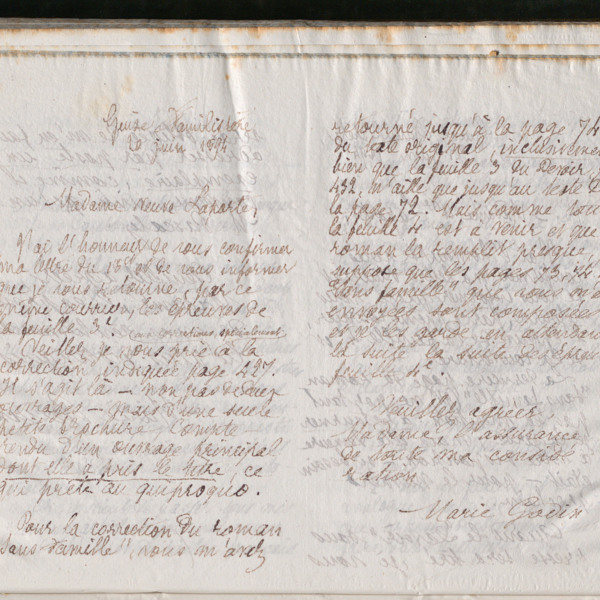 Guise Familistère
20 juin 1894
Madame Veuve Laporte,
J'ai l'honneur de vous confirmer
ma lettre du 13 et de vous informer
que je vous retourne, par ce
même courrier, les épreuves de
la feuille 3e.
Veillez je vous prie à la
correction indiquée page 297.
Il s'agit là - non pas de deux
ouvrages - mais d'une seule
petite brochure, compte
rendu d'un ouvrage principal
dont elle a pris le titre ce
qui prête au quiproquo.
Pour la correction du roman
"Sans Famille" vous m'avez
retourné jusqu'à la page 74
du texte original, inclusivement
bien que la feuille 3 du Devoir,
432, n'aille que jusqu'au texte de
la page 72. Mais comme pour
la feuille 4e est à venir et que
roman la remplit presque,
suppose que les pages 73, 74
"Sans famille" que vous m'
envoyées sont composées
et je les garde en attendant
la suite des épreuves
feuille 4e.
Veuillez agréer,
Madame, l'assurance
de toute ma considé
ration
Marie Godin